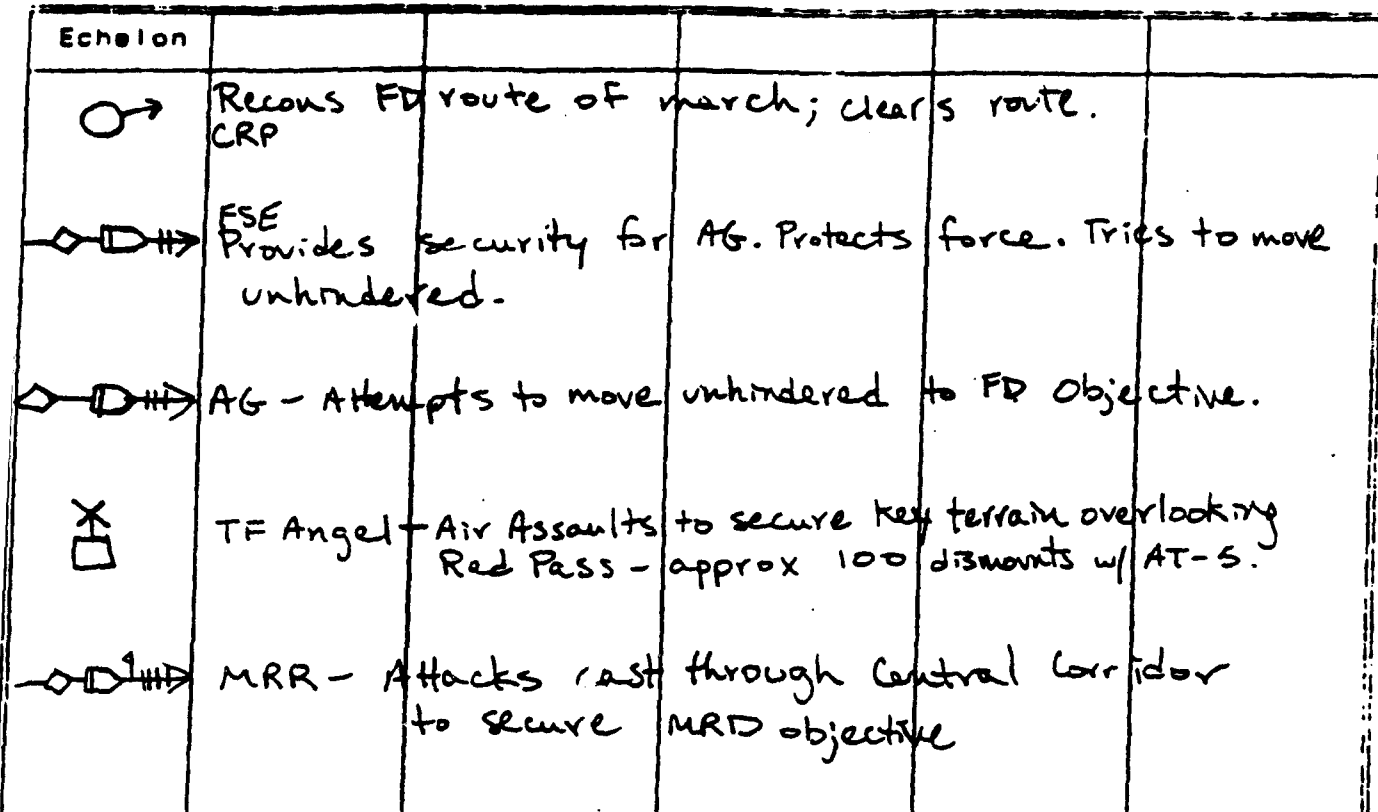 Echelon
Recons FD route of march; clears route.
CRP
FSE
Provides security for AG. Protects force. Tries to move
unhindered.
AG - Attempts to move unhindered to FD Objective.
TF Angel - Air Assaults to secure key terrain overlooking
Red Pass - approx 100 dismounts w/ AT-5.
MRR - Attacks east through Central Corridor
to secure MRD objective